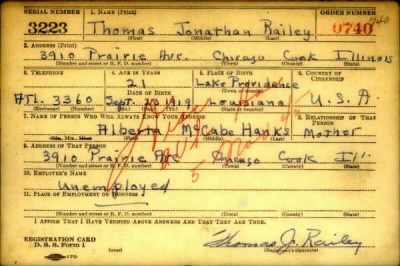 SERIAL NUMBER 1. NAME (Print) ORDER NUMBER
3223 Thomas Jonathan Railey 0740
(First) (Middle) (Last)
2. ADDRESS (Print)
3910 Prairie Ave. Chicago Cook Illinois
(Number and street or R. F. D. number) (Town) (County) (State)
3. TELEPHONE 4. AGE IN YEARS 5. PLACE OF BIRTH 6. COUNTRY OF CITIZENSHIP
21 Lake Providence
DATE OF BIRTH (Town or county)
ATL. 3360 Sept. 1919 Louisiana U.S.A
7. NAME OF PERSON WHO WILL ALWAYS KNOW YOUR ADDRESS 8. RELATIONSHIP OF THAT PERSON
Alberta McCabe Hanks Mother
9. ADDRESS OF THAT PERSON
3910 Prairie Ave Chicago Cook Ill.
(Number and street or R. F. D. number) (Town) (County) (State)
10. EMPLOYER'S NAME
Unemployed
11. PLACE OF EMPLOYMENT OR BUSINESS
(Number and street or R. F. D. number) (Town) (County) (State)
I AFFIRM THAT I HAVE VERIFIED ABOVE ANSWERS AND THAT THEY ARE TRUE.
REGISTRATION CARD
D. S. S. Form 1
Thomas J. Railey
(Registrant's signature)